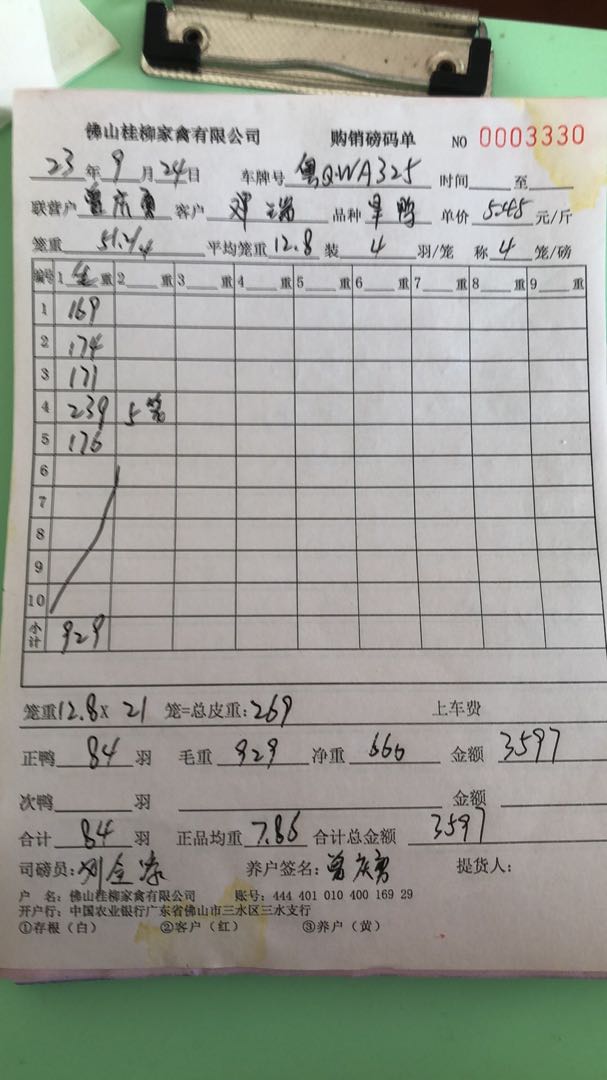 佛山桂柳家禽有限公司 购销磅码单 NO 0003330
23 年 9 月 24 日 车牌号 粤QWA325 时间 至
联营户 曾庆勇 客户 邓瑞 品种 单价 5.45 元/斤
笼重 51.4/4 平均笼重 12.8 装 4 羽/笼 称 4 笼/磅
编号 1 重 2 重 3 重 4 重 5 重 6 重 7 重 8 重 9 重
1 169
2 174
3 171
4 239 5笼
5 176
6
7
8
9
10
小计 929
笼重 12.8 X 21 笼=总皮重: 269 上车费
正鸭 84 羽 毛重 929 净重 660 金额 3597
次鸭 羽 金额
合计 84 羽 正品均重 7.86 合计总金额 3597
司磅员: 养户签名: 曾庆勇 提货人:
户 名: 佛山桂柳家禽有限公司 账号: 444 401 010 400 169 29
开户行: 中国农业银行广东省佛山市三水区三水支行
①存根（白） ②客户（红） ③养户（黄）